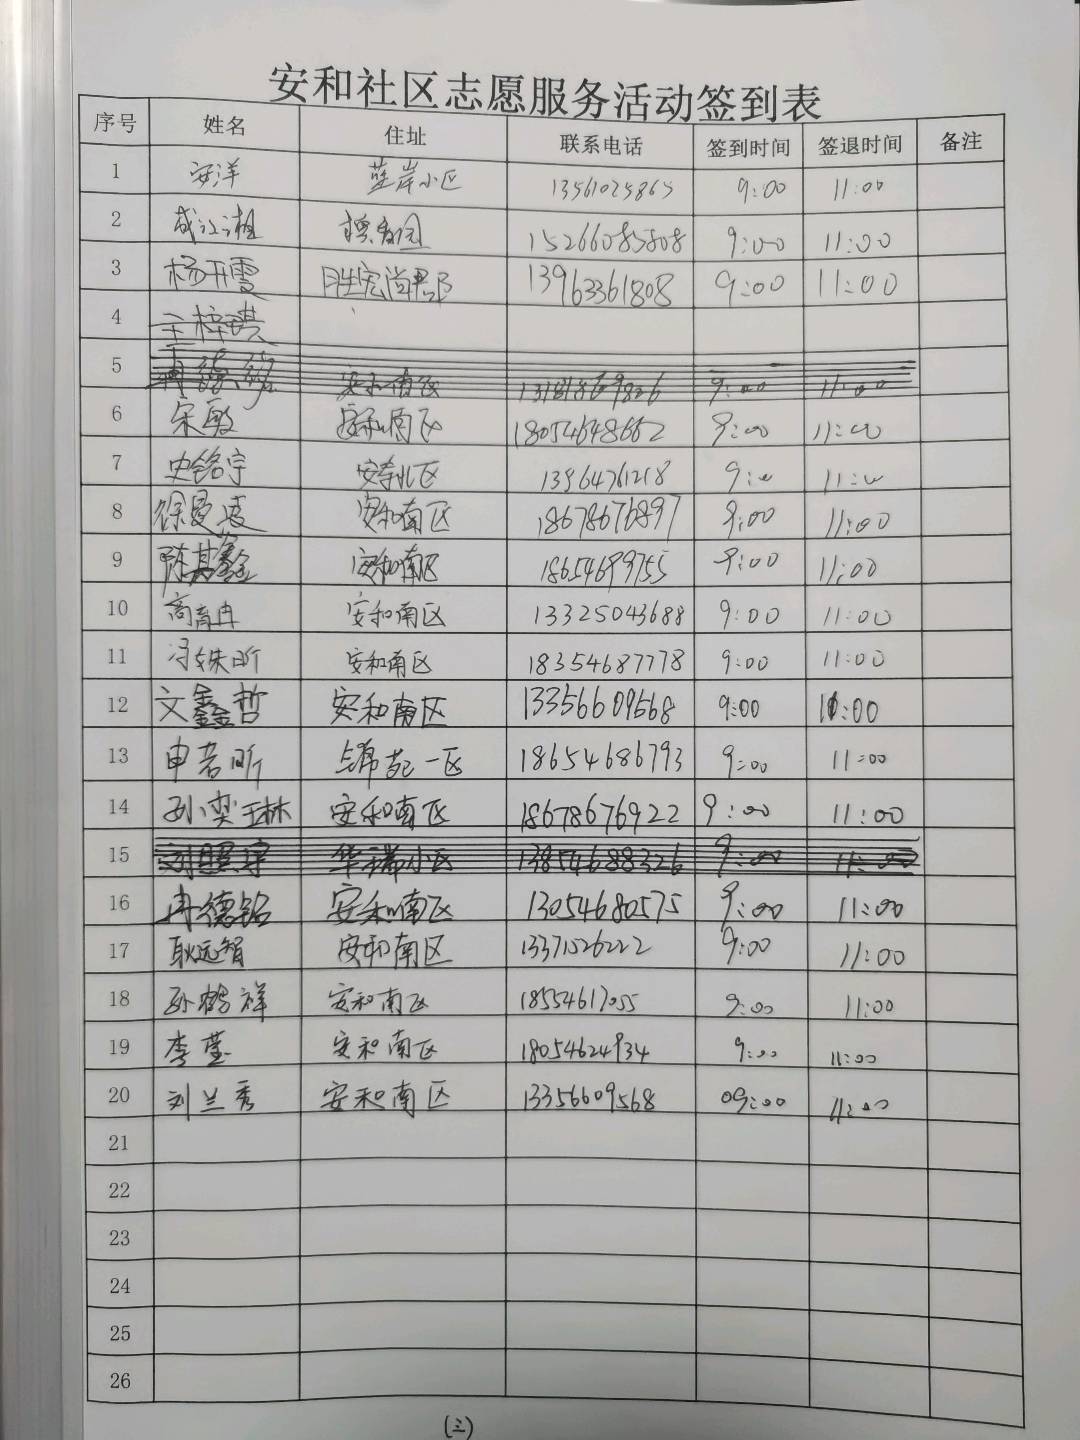 安和社区志愿服务活动签到表
序号 姓名 住址 联系电话 签到时间 签退时间 备注
1 安洋 蓝岸小区 13561025865 9:00 11:00
2 成江湘 15266085808 9:00 11:00
3 杨开霞 胜宏尚郡 13963361808 9:00 11:00
4 王梓琪
5 安和南区 9:00 11:00
6 宋敏 安和南区 18054648662 9:00 11:00
7 史铭宇 安泰北区 13964761218 9:00 11:00
8 徐曼凌 安和南区 18678676897 9:00 11:00
9 陈其鑫 安和南区 18654699755 9:00 11:00
10 高育冉 安和南区 13325043688 9:00 11:00
11 冯轶昕 安和南区 18354687778 9:00 11:00
12 文鑫哲 安和南区 13356609568 9:00 11:00
13 申若昕 锦苑一区 18654686793 9:00 11:00
14 孙奕琳 安和南区 18678676922 9:00 11:00
15 刘照宇 华瑞小区 13854688326 9:00 11:00
16 冉德铭 安和南区 13054680575 9:00 11:00
17 耿远智 安和南区 13371526222 9:00 11:00
18 孙鹤祥 安和南区 18554617055 9:00 11:00
19 李莹 安和南区 18054624934 9:00 11:00
20 刘兰秀 安和南区 13356609568 09:00 11:00
21
22
23
24
25
26
(三)